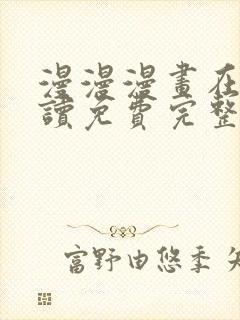 漫漫漫畫在
讀免費完整
富野由悠季 矢